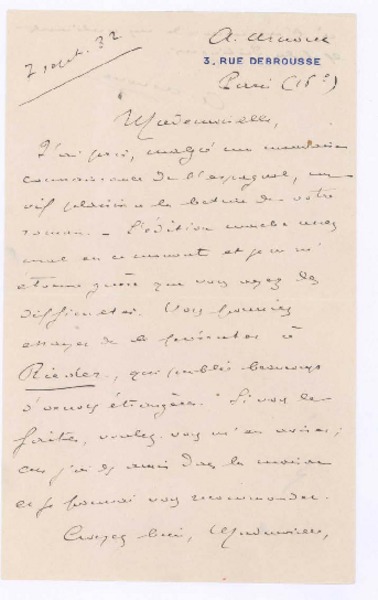 7 sept. 32
3, RUE DEBROUSSE
Paris (16e)
Mademoiselle,
J'ai pris, malgré ma mauvaise
connaissance de l'espagnol, un
vif plaisir à la lecture de votre
roman. – L'édition marche assez
mal en ce moment et je ne m'
étonne guère que vous ayez des
difficultés. Vous pourriez
essayer de le présenter à
Rieder, qui publie beaucoup
d'œuvres étrangères. Si vous le
faites, voulez-vous m'en aviser;
car j'ai des amis dans la maison
et je pourrai vous recommander.
Croyez bien, Mademoiselle,